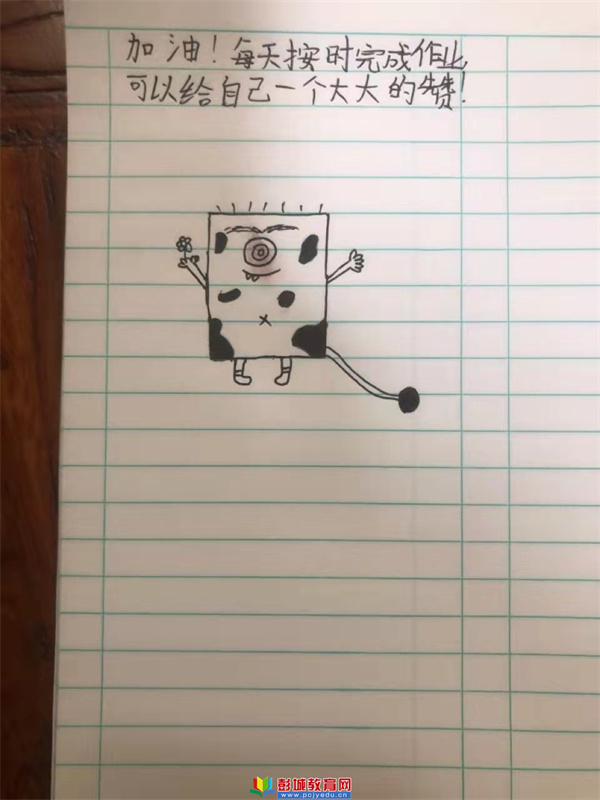 加油！每天按时完成作业，
可以给自己一个大大的赞！
彭城教育网
www.pcjyedu.cn